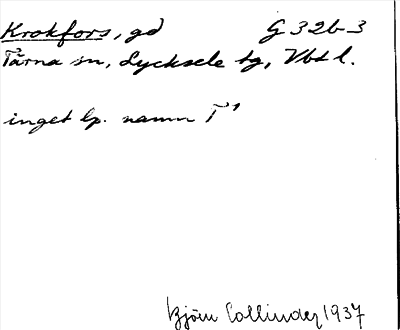 Krokfors, gd G 32b-3
Tärna sn, Lycksele tg, Vbt l.
inget lp. namn T'
Björn Collinder 1937